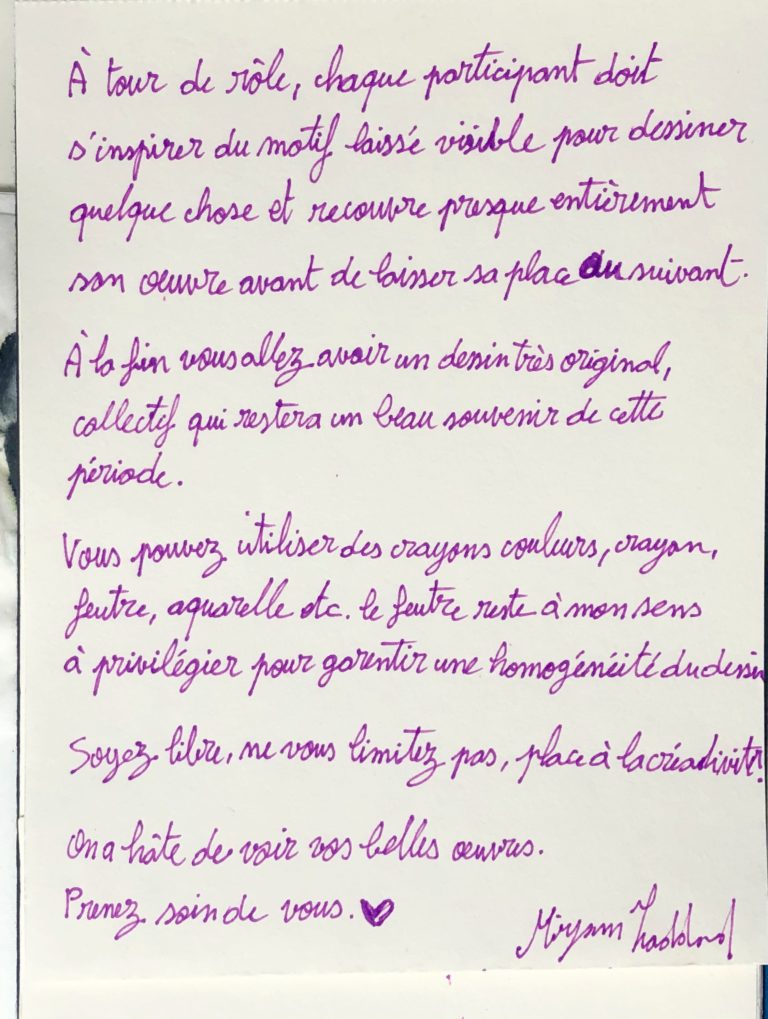 À tour de rôle, chaque participant doit
s'inspirer du motif laissé visible pour dessiner
quelque chose et recouvre presque entièrement
son œuvre avant de laisser sa place au suivant.
À la fin vous allez avoir un dessin très original,
collectif qui restera un beau souvenir de cette
période.
Vous pouvez utiliser des crayons couleurs, crayon,
feutre, aquarelle etc. le feutre reste à mon sens
à privilégier pour garentir une homogénéité du dessin
Soyez libre, ne vous limitez pas, place à la créativité!
On a hâte de voir vos belles œuvres.
Prenez soin de vous. ♥
Miryam Haddad